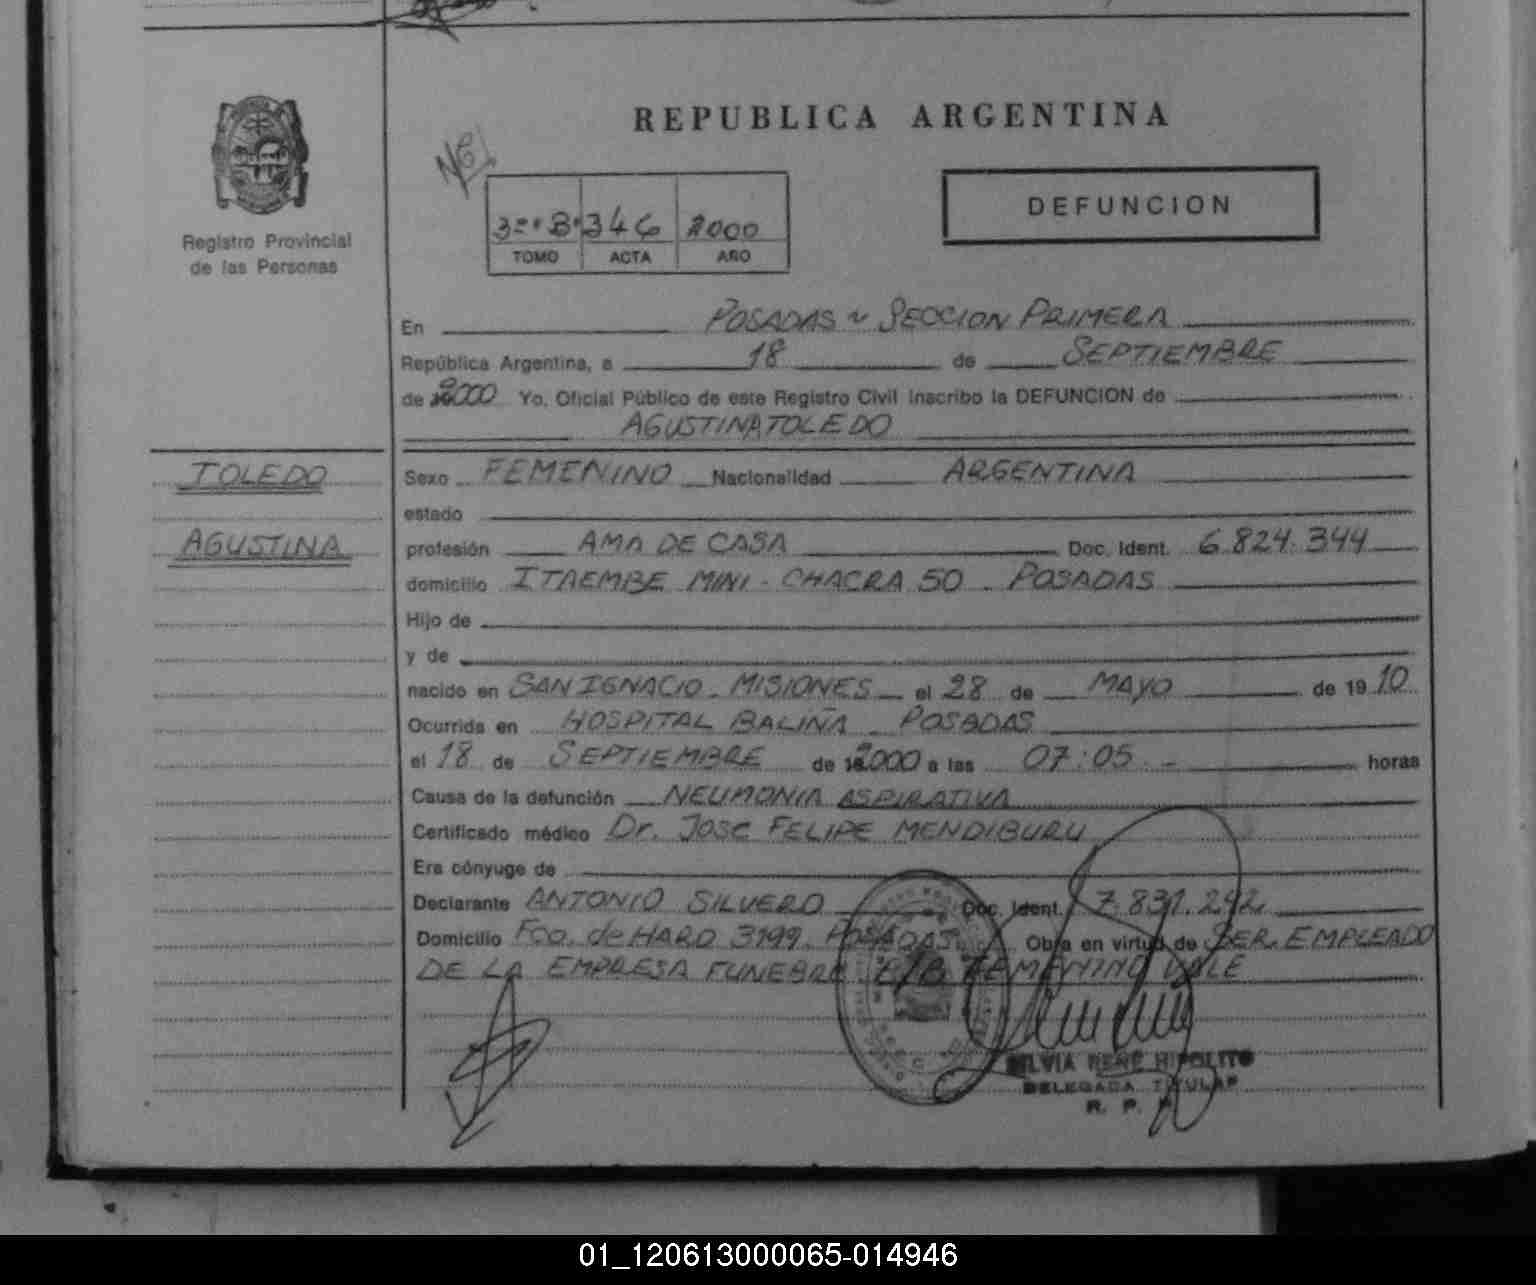 REPUBLICA ARGENTINA
DEFUNCION
Registro Provincial
de las Personas
2000
TOMO ACTA AÑO
En POSADAS ~ SECCION PRIMERA
República Argentina, a 18 de SEPTIEMBRE
de 2000 Yo, Oficial Público de este Registro Civil inscribo la DEFUNCION de
AGUSTINA TOLEDO
TOLEDO
AGUSTINA
Sexo FEMENINO Nacionalidad ARGENTINA
estado
profesión AMA DE CASA Doc. Ident. 6.824.344
domicilio ITAEMBE MINI - CHACRA 50 - POSADAS
Hijo de
y de
nacido en SAN IGNACIO - MISIONES el 28 de MAYO de 1910
Ocurrida en HOSPITAL BALIÑA - POSADAS
el 18 de SEPTIEMBRE de 2000 a las 07:05 - horas
Causa de la defunción NEUMONIA ASPIRATIVA
Certificado médico Dr. JOSE FELIPE MENDIBURU
Era cónyuge de
Declarante ANTONIO SILVERO Doc. Ident. 7.831.242
Domicilio Fco. de HARO 3199 - POSADAS Obra en virtud de SER EMPLEADO
DE LA EMPRESA FUNEBRE E/B FEMENINO VALE
SILVIA RENE HIPOLITO
DELEGADA TITULAR
R. P. P.
01_120613000065-014946